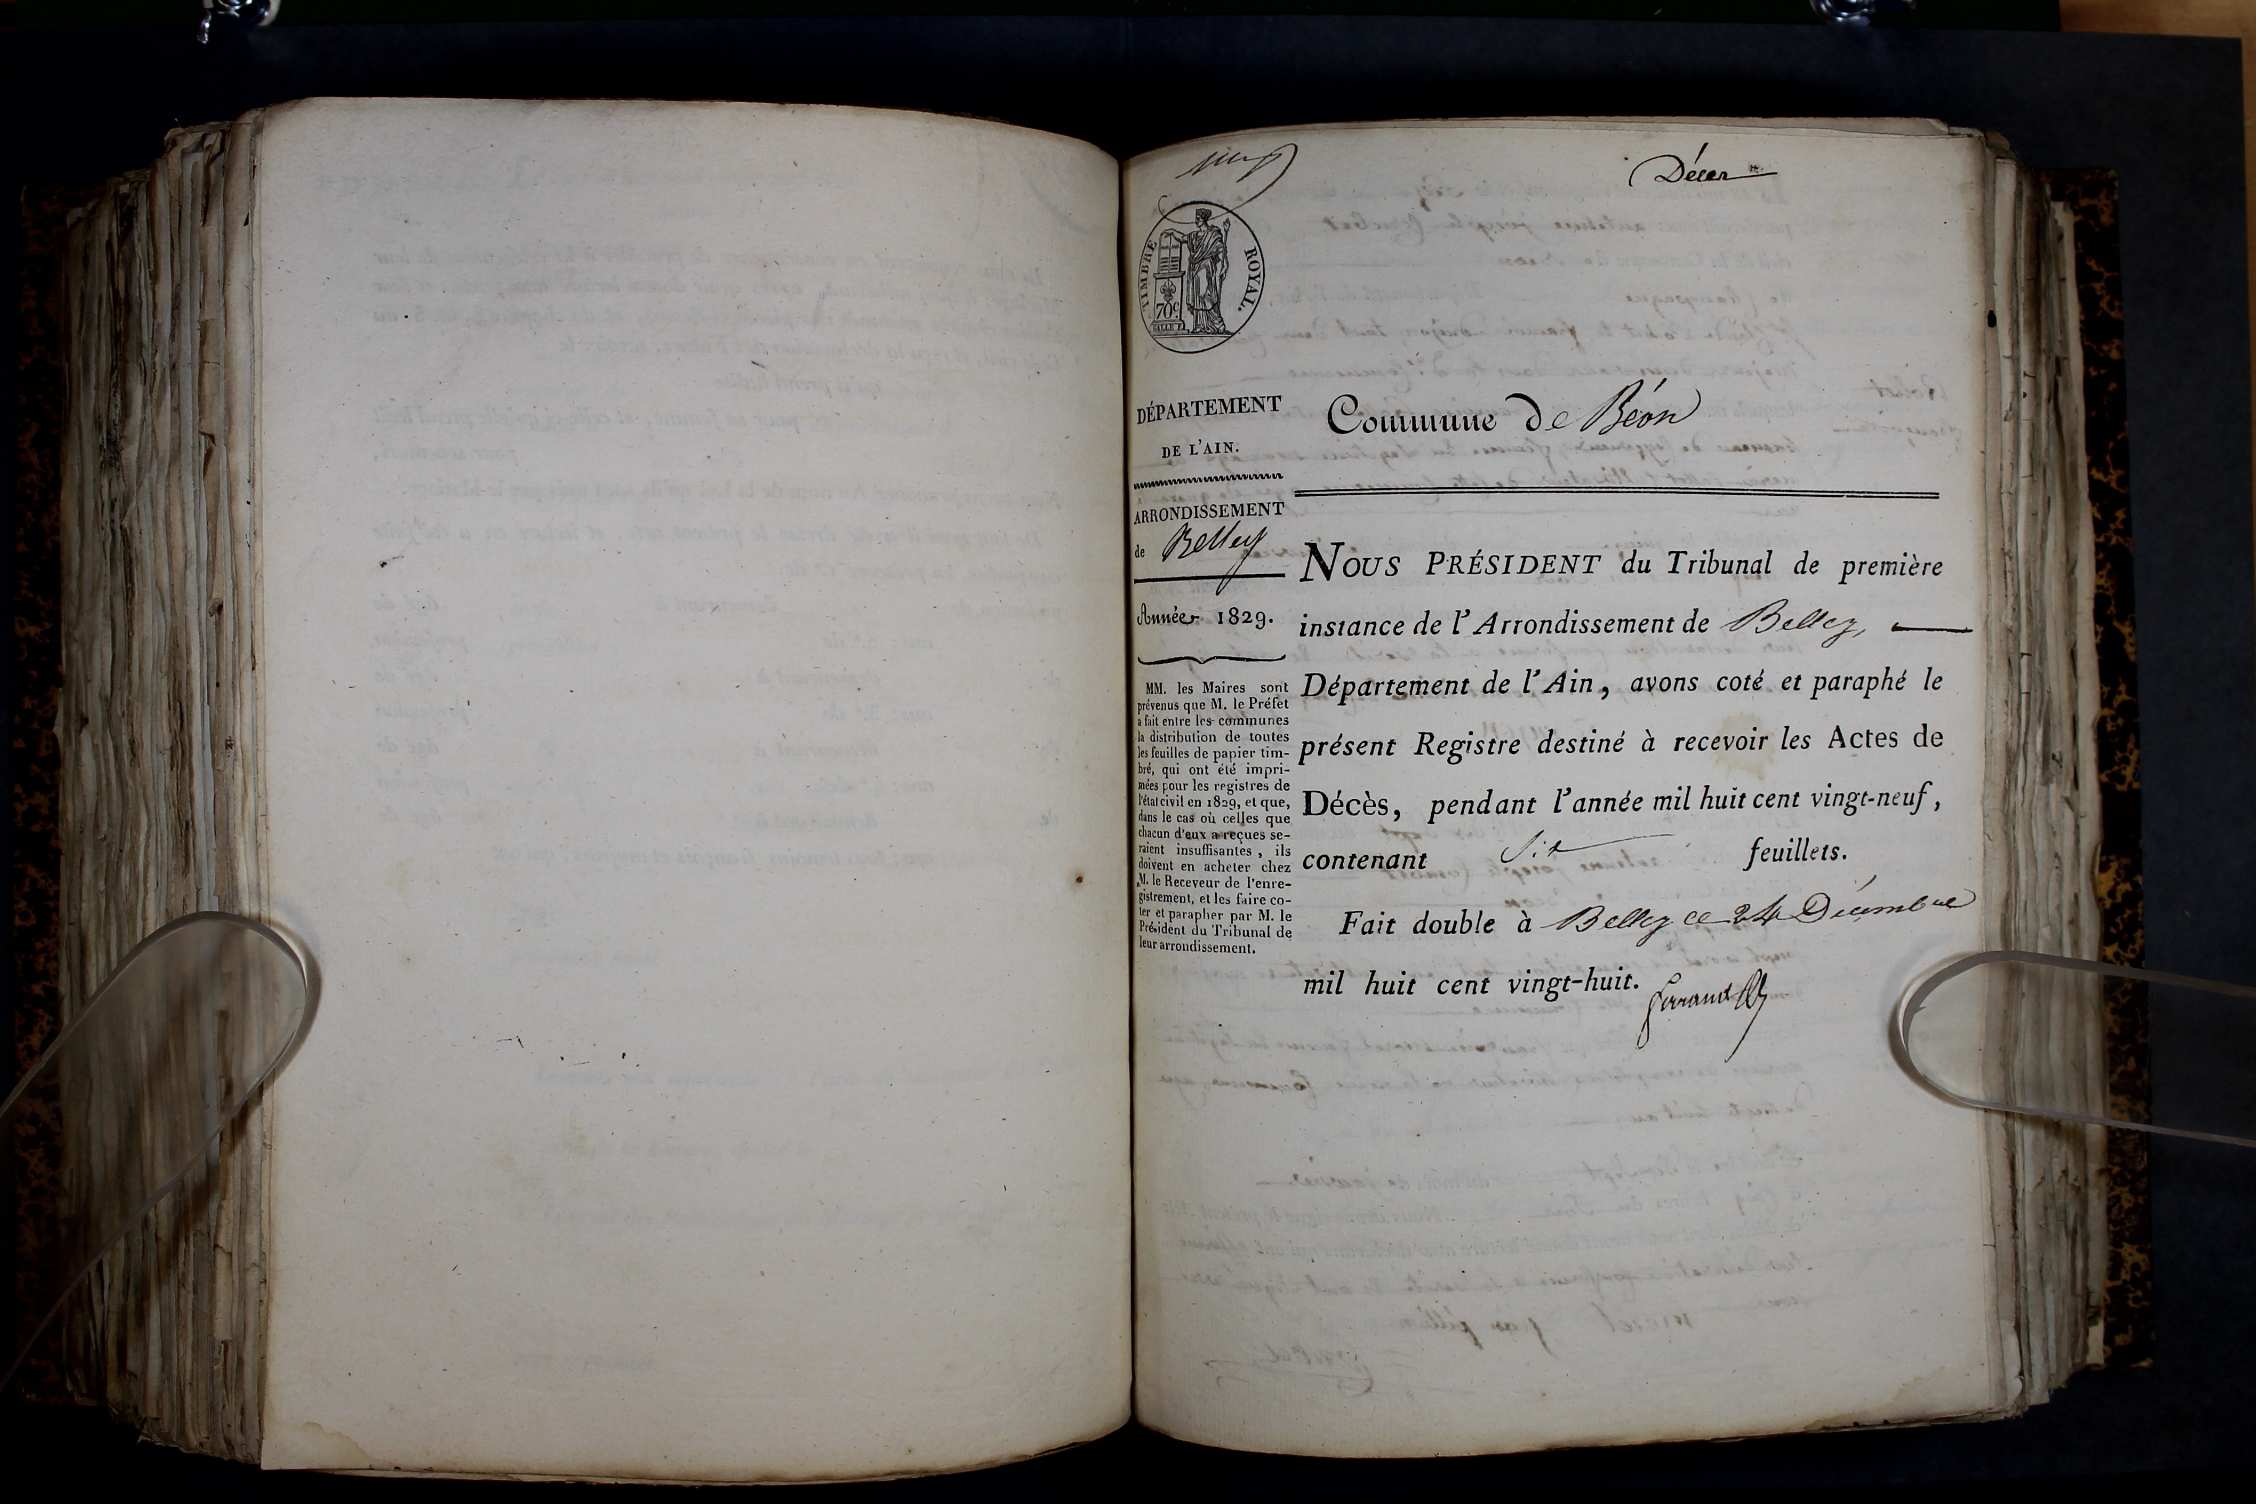 Décès
TIMBRE ROYAL.
70c
DÉPARTEMENT
DE L'AIN.
ARRONDISSEMENT
de Belley
Année 1829.
MM. les Maires sont
prévenus que M. le Préfet
a fait entre les communes
la distribution de toutes
les feuilles de papier tim-
bré, qui ont été impri-
mées pour les registres de
l'état civil en 1829, et que,
dans le cas où celles que
chacun d'eux a reçues se-
raient insuffisantes, ils
doivent en acheter chez
M. le Receveur de l'enre-
gistrement, et les faire co-
ter et parapher par M. le
Président du Tribunal de
leur arrondissement.
Commune de Béon
NOUS PRÉSIDENT du Tribunal de première
instance de l'Arrondissement de Belley,
Département de l'Ain, avons coté et paraphé le
présent Registre destiné à recevoir les Actes de
Décès, pendant l'année mil huit cent vingt-neuf,
contenant Six feuillets.
Fait double à Belley ce 24 Décembre
mil huit cent vingt-huit.